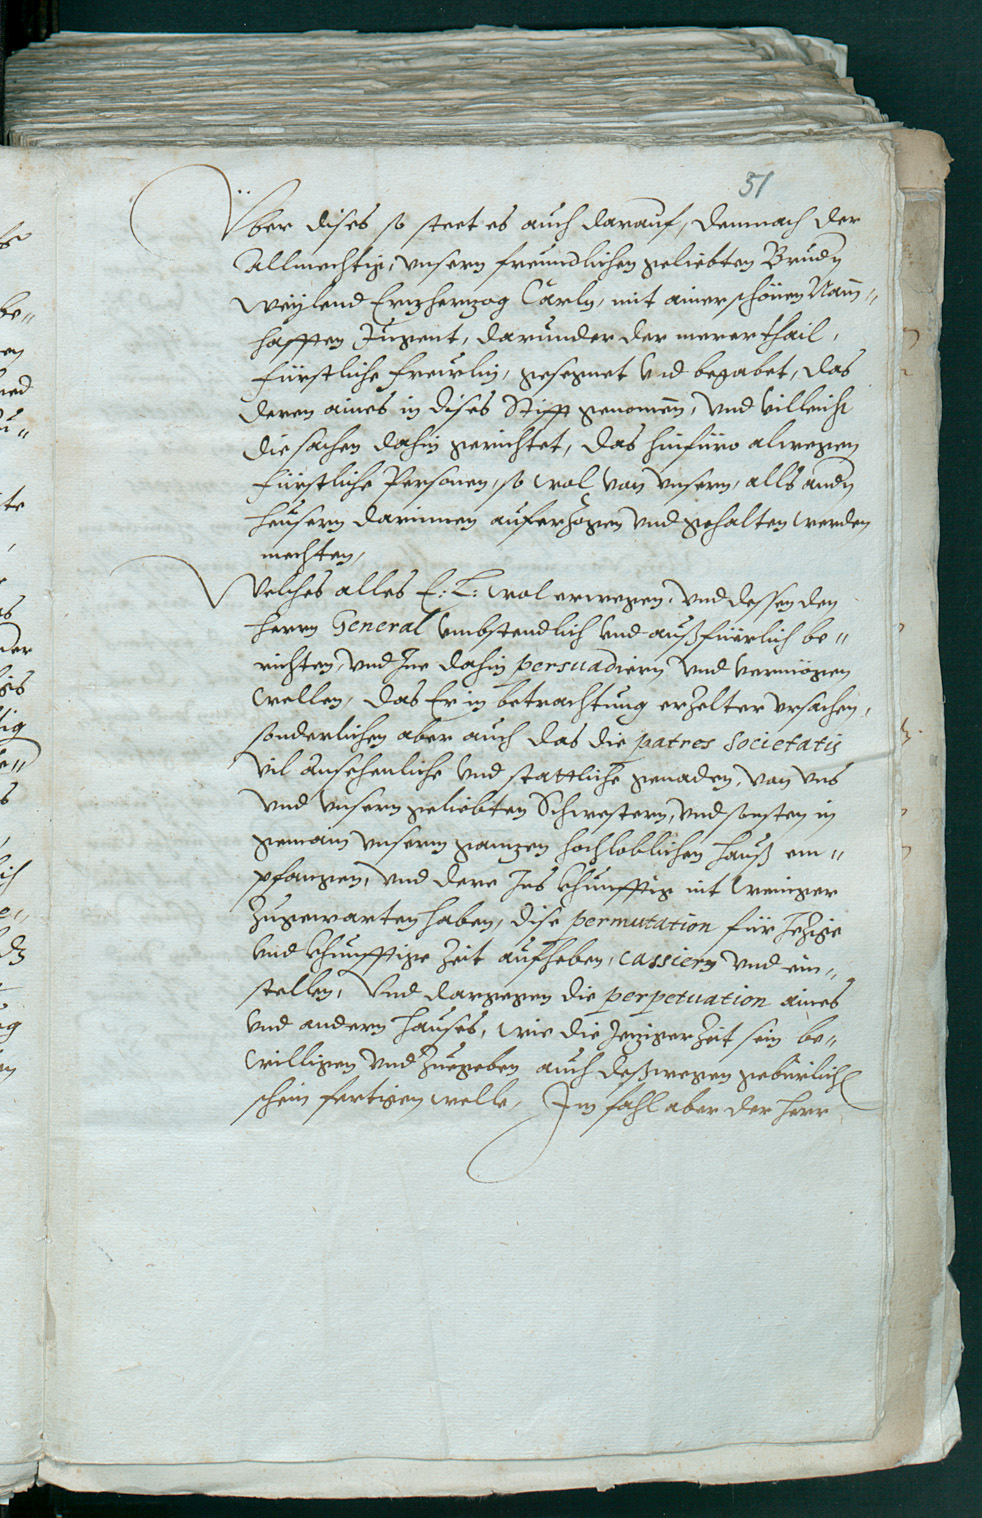 51
Über dises so steet es auch darauf, demnach der
Allmechtig, unsern freundlichen geliebten Bruedern
weylend Erzherzog Carln, mit ainer schönen Nam=
hafften Jugent, darunder der merer thail,
Fürstliche Freulin, gesegnet und begabet, das
deren aines in dises Stifft genomen, und villeicht
die sachen dahin gerichtet, das hinfüro alwegen
Fürstliche Personen, so wol von unsern, alls andern
heusern darinnen auferzogen und gehalten werden
mechten,
Welches alles E: L: wol erwegen, und dessen den
herrn General umbstendlich und außfüerlich be=
richten, und Ine dahin persuadiern und vermögen
wellen, das Er in betrachtung erzelter ursachen,
sonderlichen aber auch das die patres Societatis
vil ansehenliche und stattliche genaden, von uns
und unsern geliebten Schwestern, und sonsten in
gemain unserm ganzen hochloblichen Hauß em=
pfangen, und dere Ins khunfftig nit weniger
zugewarten haben, dise permutation für Iezige
und khunfftige Zeit aufheben, cassiern und ein=
stellen, und dargegen die perpetuation aines
und andern Hauses, wie die Iezigerzeit sein be=
willigen und zuegeben auch deßwegen gebürlich
schein fertigen welle, Im fahl aber der herr